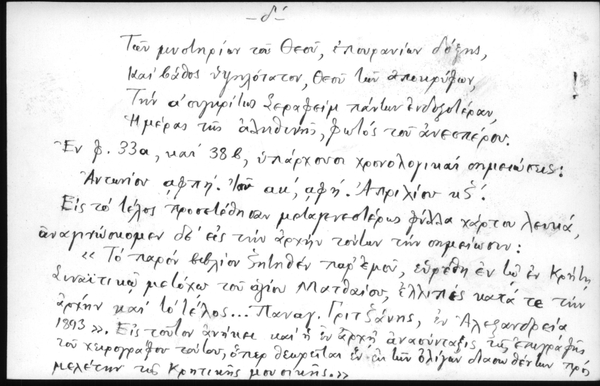 -δ'-
Τῶν μυστηρίων τοῦ Θεοῦ, ἐπουρανίων δόξης,
καὶ βάθος ὑψηλότατον, Θεοῦ τῶν ἀποκρύφων,
Τὴν ἀσυγκρίτως Σεραφεὶμ πάντων ἐνδοξοτέραν,
Ἡμέρας τῆς ἀληθινῆς, φωτός τοῦ ἀνεσπέρου.
Ἐν φ. 33α, καὶ 38β, ὑπάρχουσι χρονολογικαὶ σημειώσεις:
Ἀντωνίου αφπή. ακ', αφή. Ἀπριλίου κξ'.
Εἰς τὸ τέλος προσετέθησαν μεταγενεστέρως φύλλα χάρτου λευκά,
ἀναγινώσκομεν δὲ εἰς τὴν ἀρχὴν τούτων τὴν σημείωσιν:
«Τὸ παρὸν βιβλίον ζητηθὲν παρ' ἐμοῦ, εὑρέθη ἐν τῷ ἐν Κρήτῃ
Σιναϊτικῷ μετόχῳ τοῦ ἁγίου Ματθαίου, ἐλλιπὲς κατά τε τὴν
ἀρχὴν καὶ τὸ τέλος... Παναγ. Γριτζάνης, ἐν Ἀλεξανδρείᾳ
1893». Εἰς τοῦτον ἀνήκει καὶ ἡ ἐν ἀρχῇ ἀνασύνταξις τῆς ἐπιγραφῆς
τοῦ χειρογράφου τούτου, ὅπερ θεωρεῖται ἓν ἐκ τῶν ὀλίγων διασωθέντων πρὸς
μελέτην τῆς Κρητικῆς μουσικῆς.»